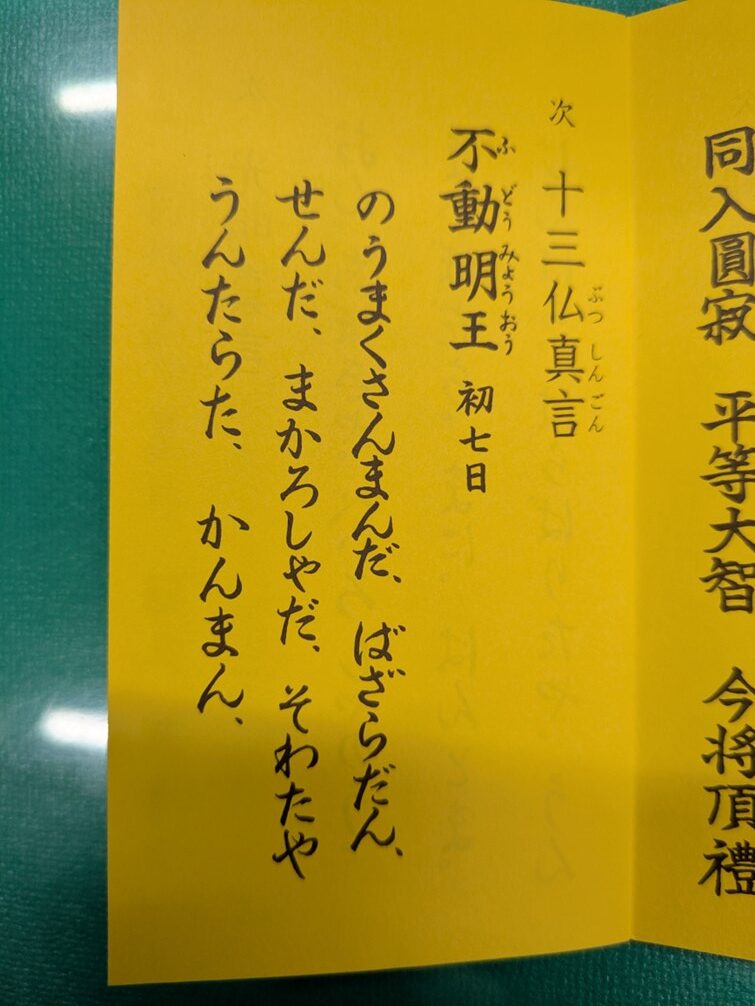 同入圓寂　平等大智　今将頂禮
次　十三仏真言
ぶつしんごん
不動明王　初七日
ふどうみょうおう
のうまくさんまんだ、ばざらだん、
せんだ、まかろしゃだ、そわたや
うんたらた、かんまん、